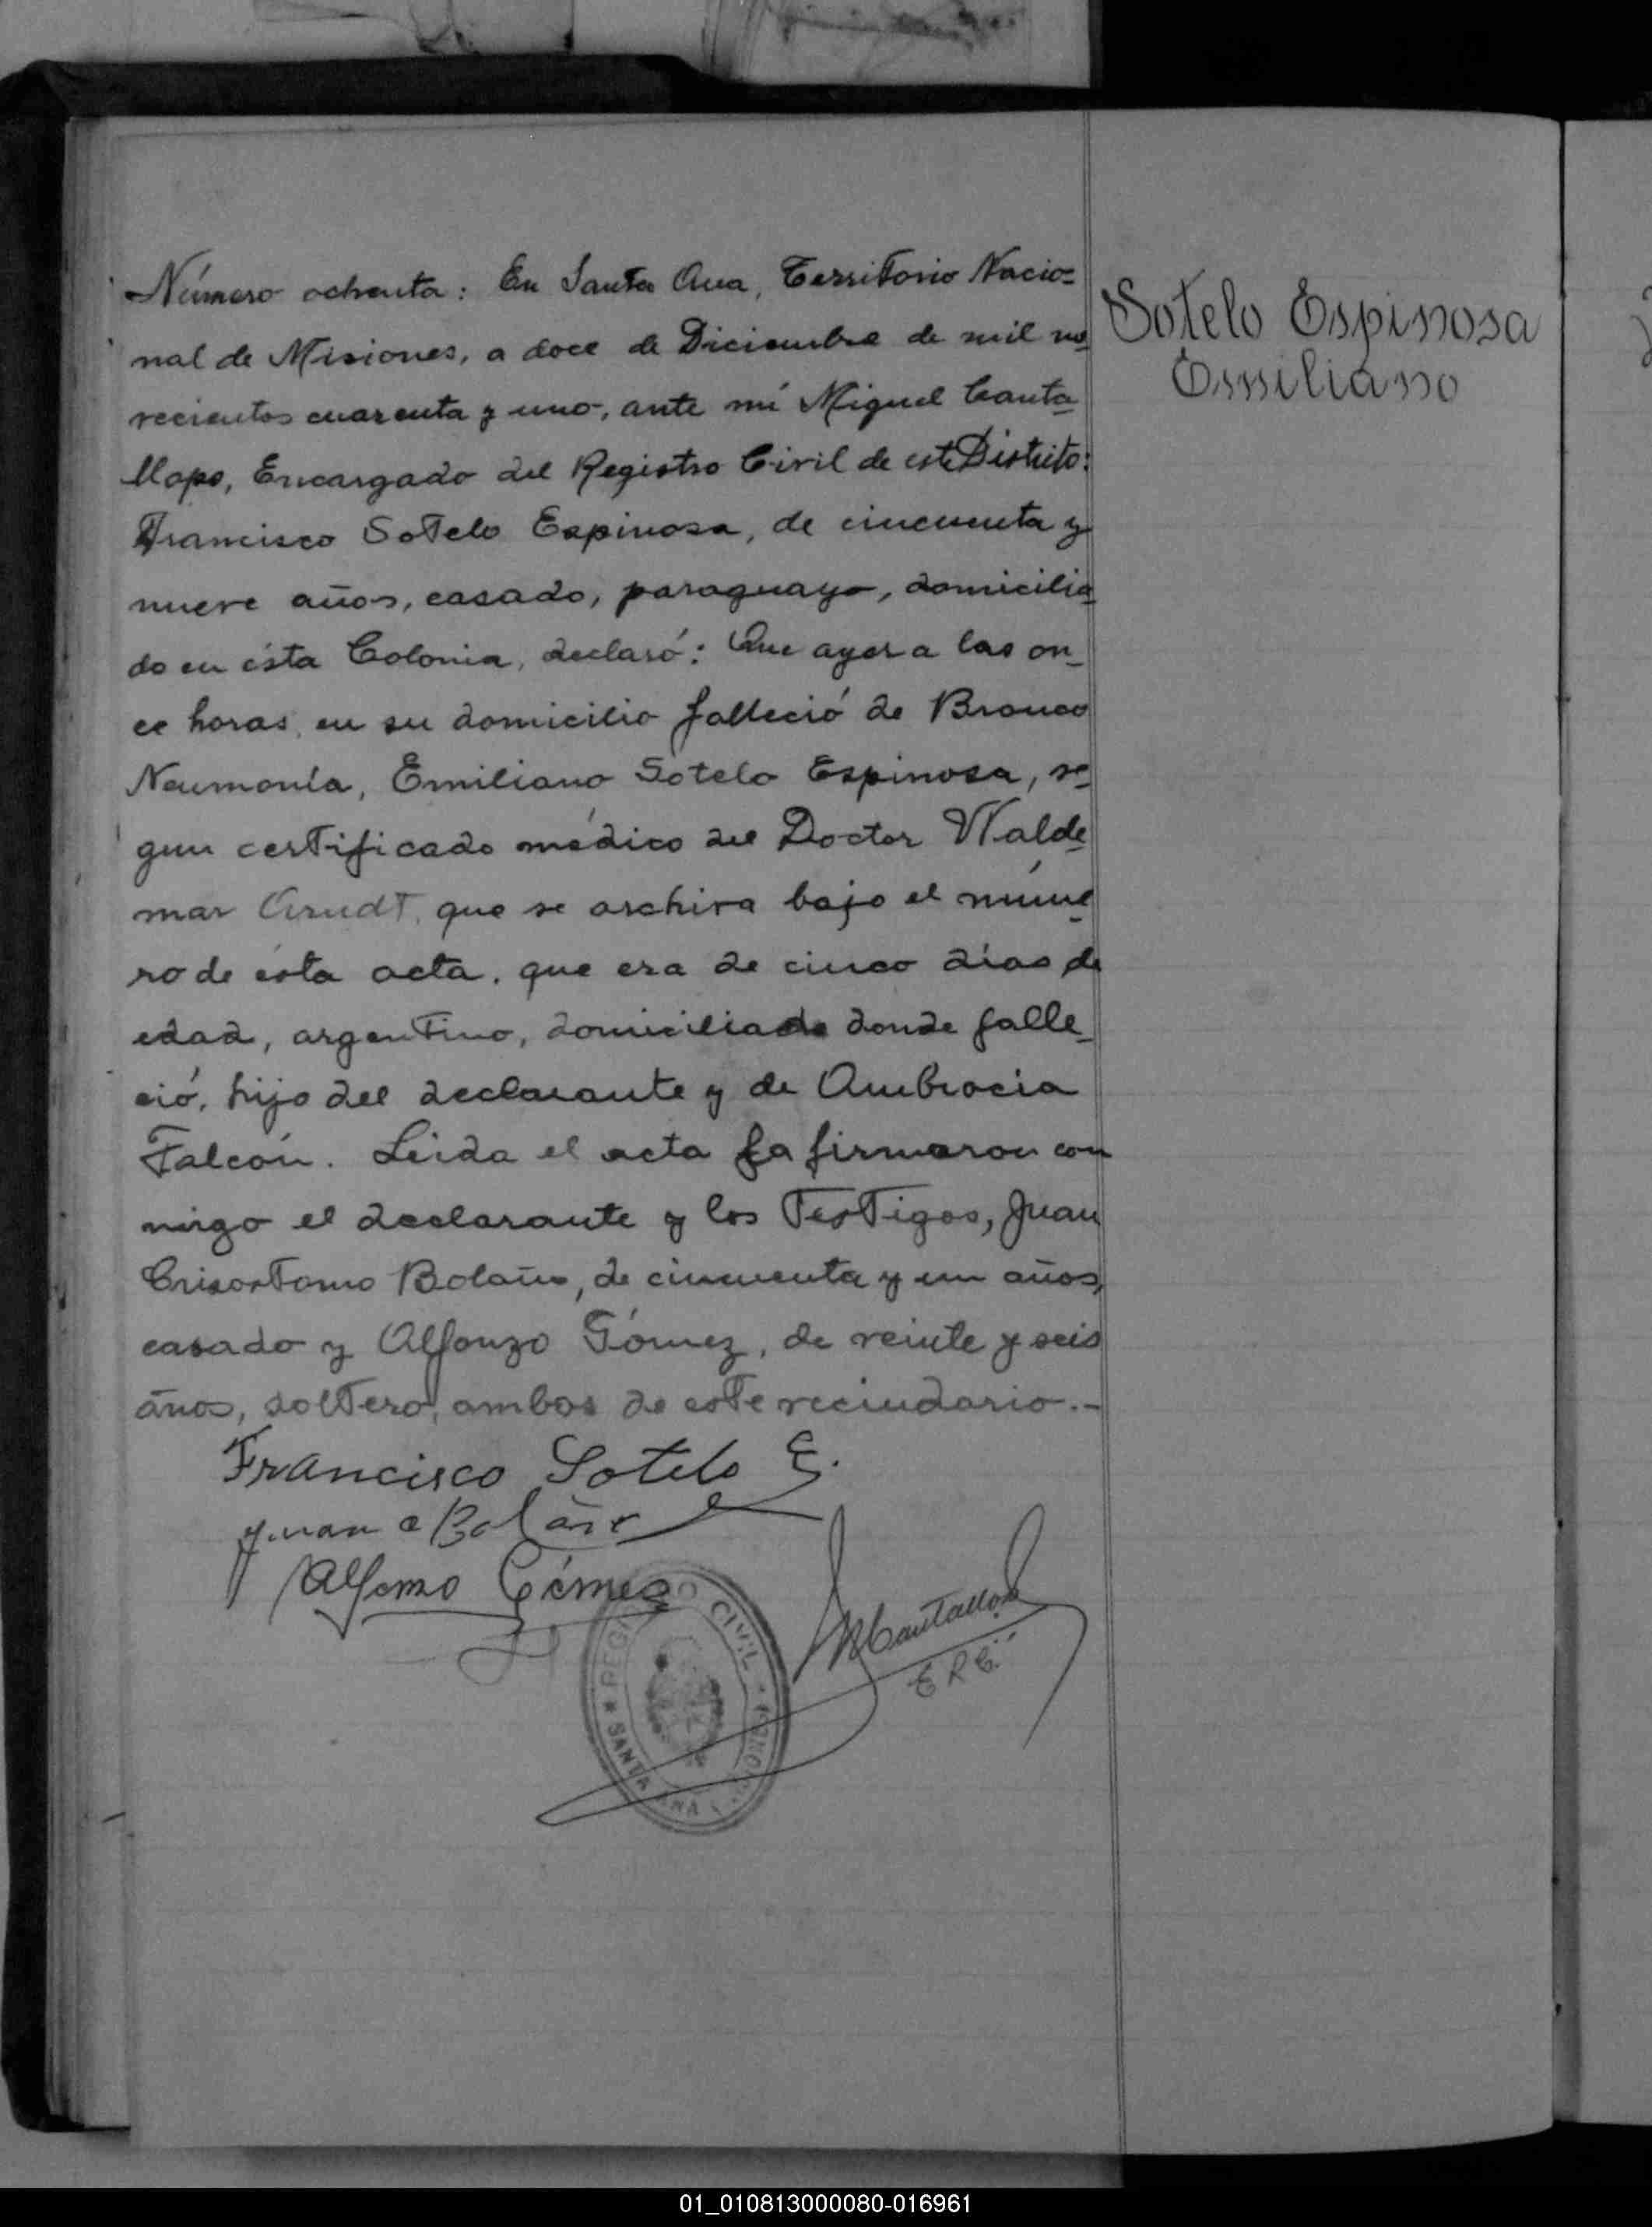 Número ochenta: En Santa Ana, Territorio Nacio=
nal de Misiones, a doce de Diciembre de mil no
recientos cuarenta y uno, ante mí Miguel Canta
llops, Encargado del Registro Civil de este Distrito:
Francisco Sotelo Espinosa, de cincuenta y
nueve años, casado, paraguayo, domicilia
do en ésta Colonia, declaró: Que ayer a las on_
ce horas, en su domicilio falleció de Bronco
Neumonía, Emiliano Sotelo Espinosa, se
gun certificado médico del Doctor Walde
mar Arndt, que se archiva bajo el núme
ro de ésta acta. que era de cinco días de
edad, argentino, domiciliado donde falle_
ció, hijo del declarante y de Ambrocia
Falcón. Leida el acta la firmaron con
migo el declarante y los Testigos, Juan
Crisostomo Bolaño, de cincuenta y un años,
casado y Alfonzo Gómez, de veinte y seis
años, soltero, ambos de este vecindario.-
Sotelo Espinosa
Emiliano
Francisco Sotelo E.
Juan C Bolaño
Alfonso Gómez
MCantallops
E R C.
REGISTRO CIVIL
SANTA ANA
01_010813000080-016961